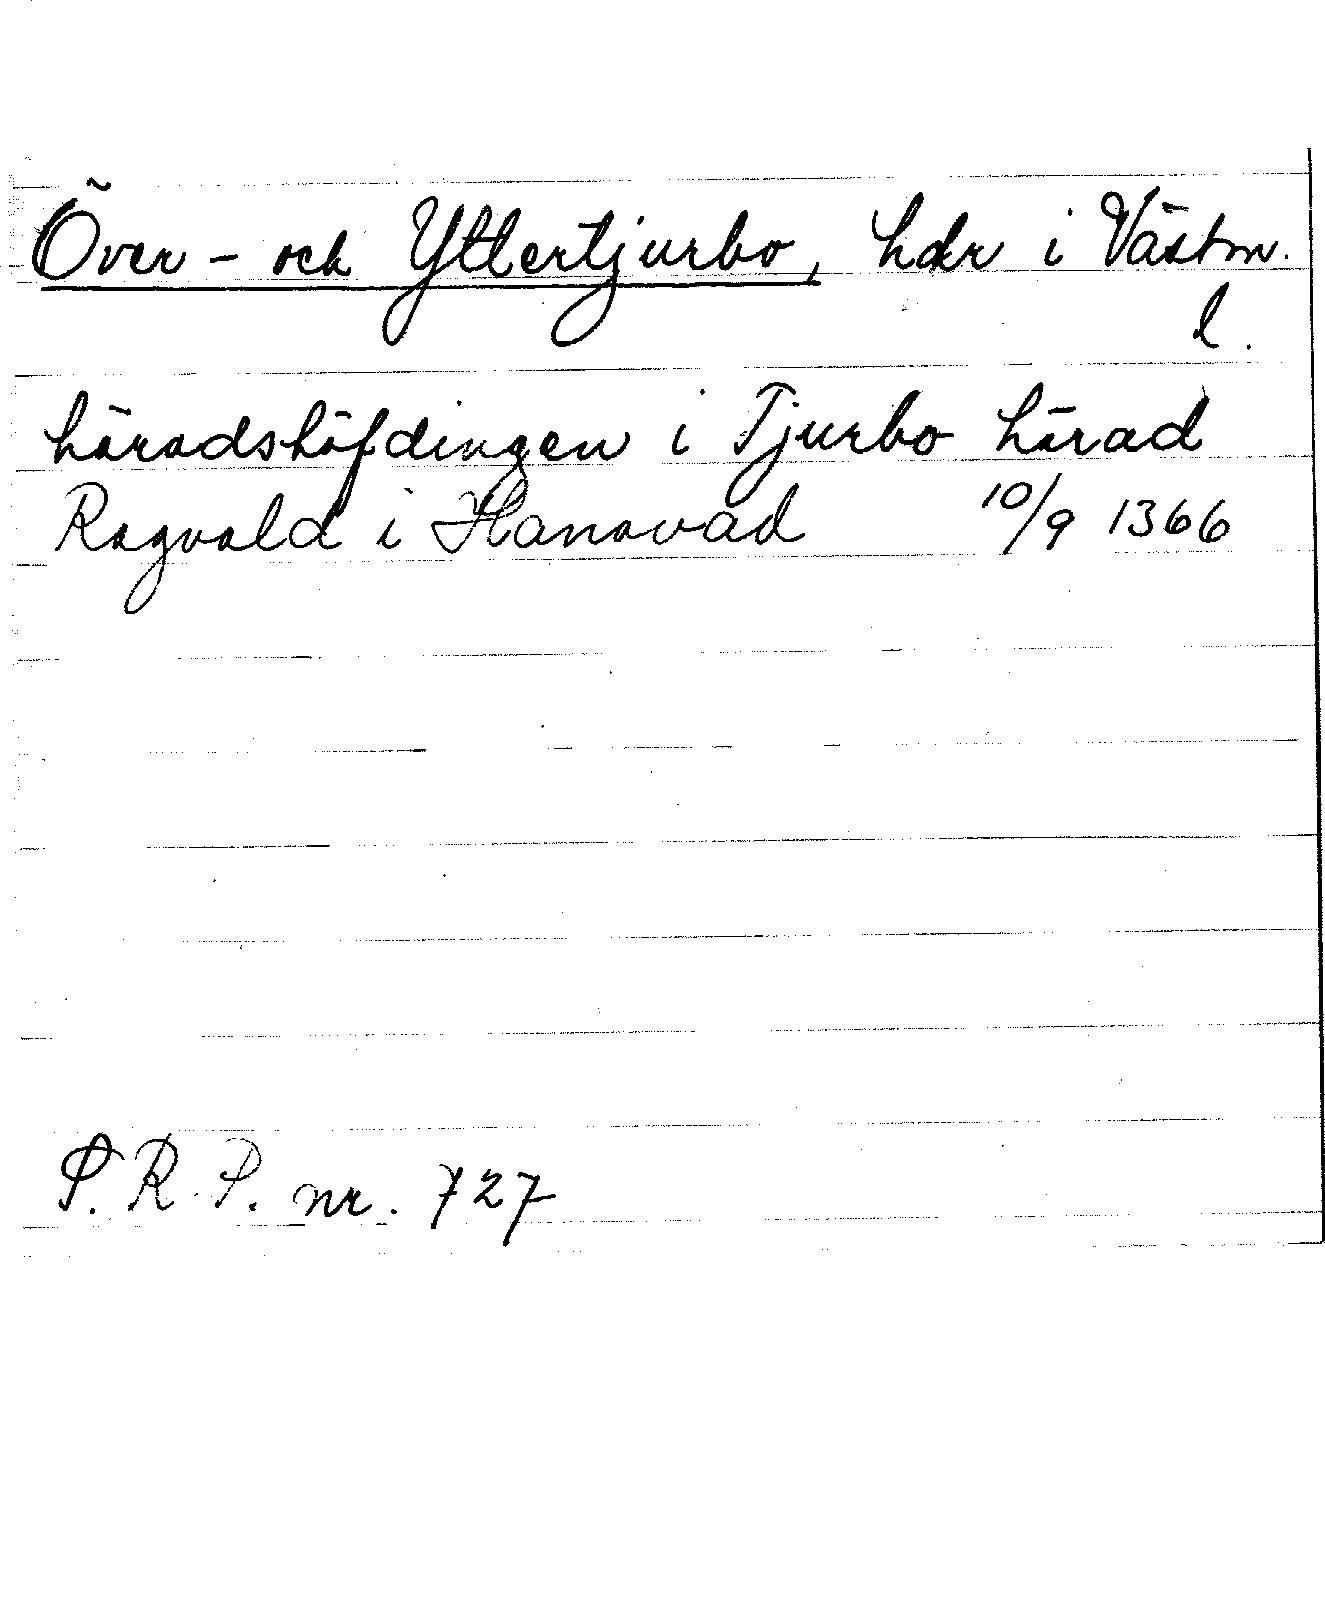 Över- och Yttertjurbo, hdr i Västm.
l.
häradshöfdingen i Tjurbo härad
Ragvald i Hanavad 10/9 1366
S. R. P. nr. 727